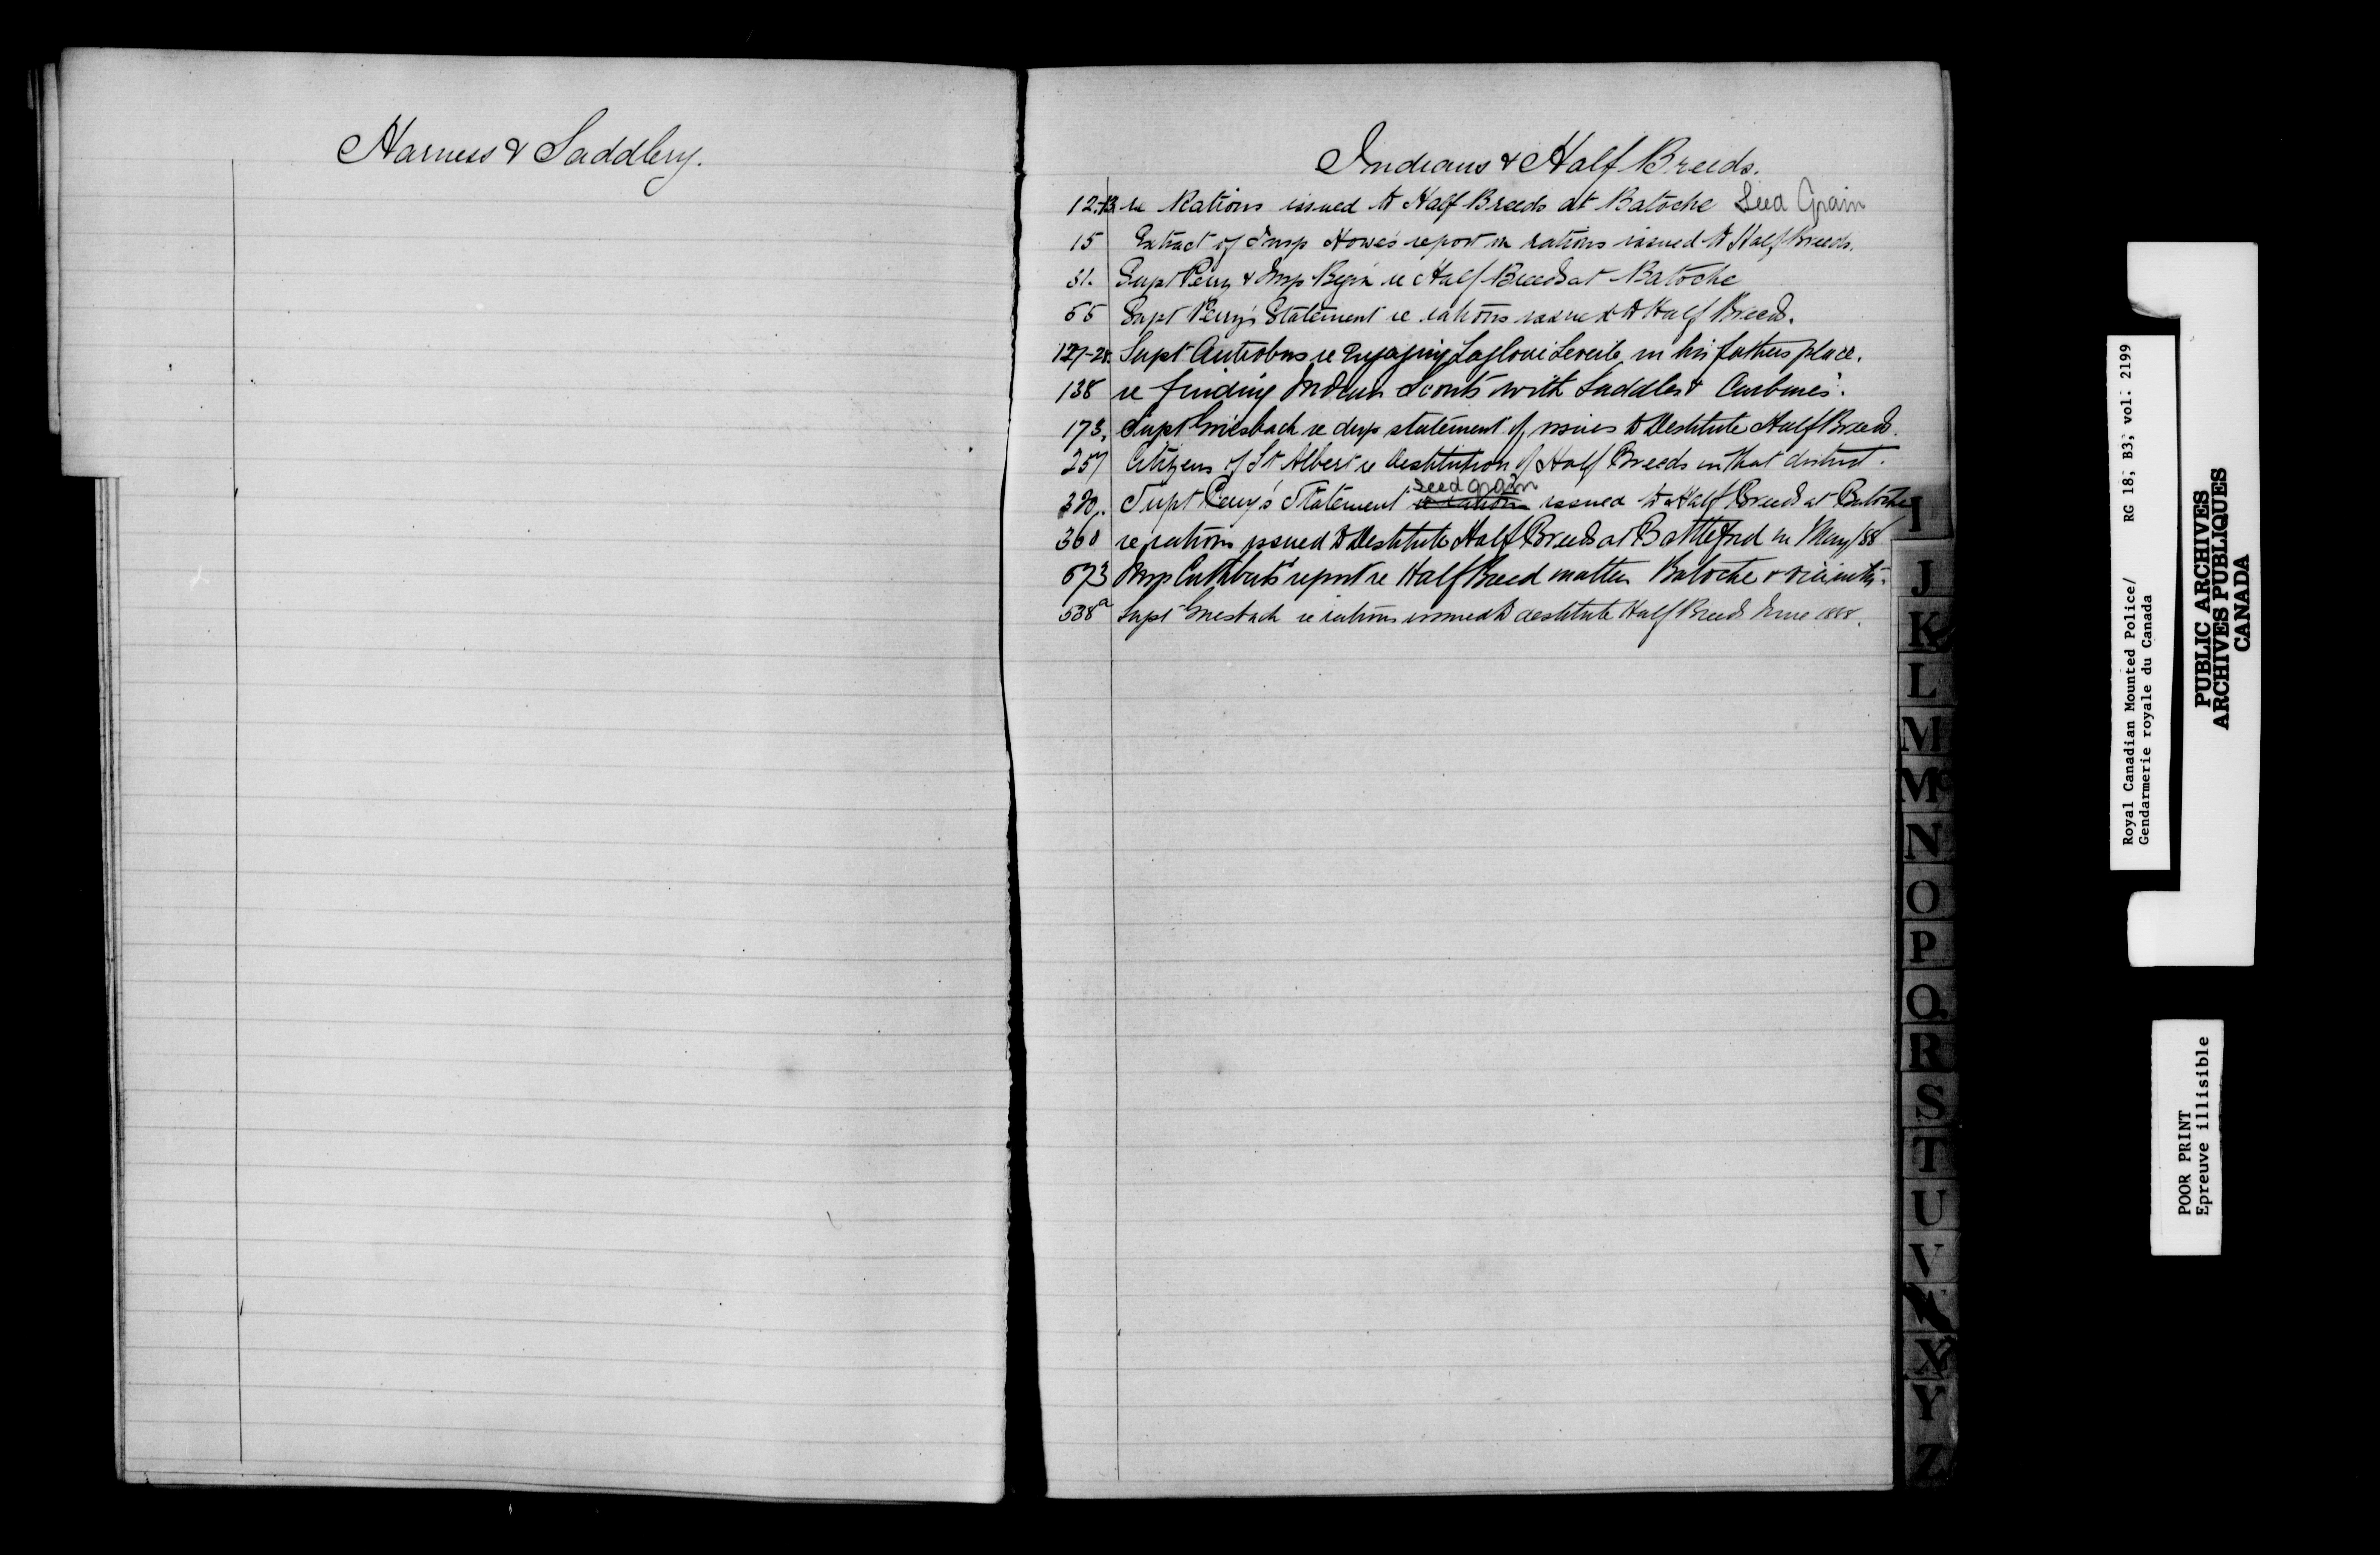 Harness & Saddlery.
Indians & Half Breeds.
12-13 re Rations issued to Half Breeds at Batoche Seed Grain
15 Extract of Insp Howe's report re rations issued to Half Breeds.
51. Supt Perry & Insp Begin re Half Breeds at Batoche
55 Supt Perry's Statement re rations issued to Half Breeds.
127-28. Supt Antrobus re Engaging Leveille in his fathers place.
138 re Indian Scouts with Saddles & Carbines.
173. Supt Griesbach re dup statement of issues to Destitute Half Breeds.
257 Citizens of St Albert re Destitution of Half Breeds in that district.
seed grain
320. Supt Perry's Statement re rations issued to Half Breeds at Batoche
360 re rations issued to Destitute Half Breeds at Battleford in May/88
573 Insp Cuthbert's report re Half Breed matters Batoche & vicinity.
538a Supt Griesbach re rations issued to destitute Half Breeds June 1888.
I
J
K
L
M
Mc
N
O
P
Q
R
S
T
U
V
W
X
Y
Z
Royal Canadian Mounted Police/ RG 18, B3, vol. 2199
Gendarmerie royale du Canada
PUBLIC ARCHIVES
ARCHIVES PUBLIQUES
CANADA
POOR PRINT
Epreuve illisible